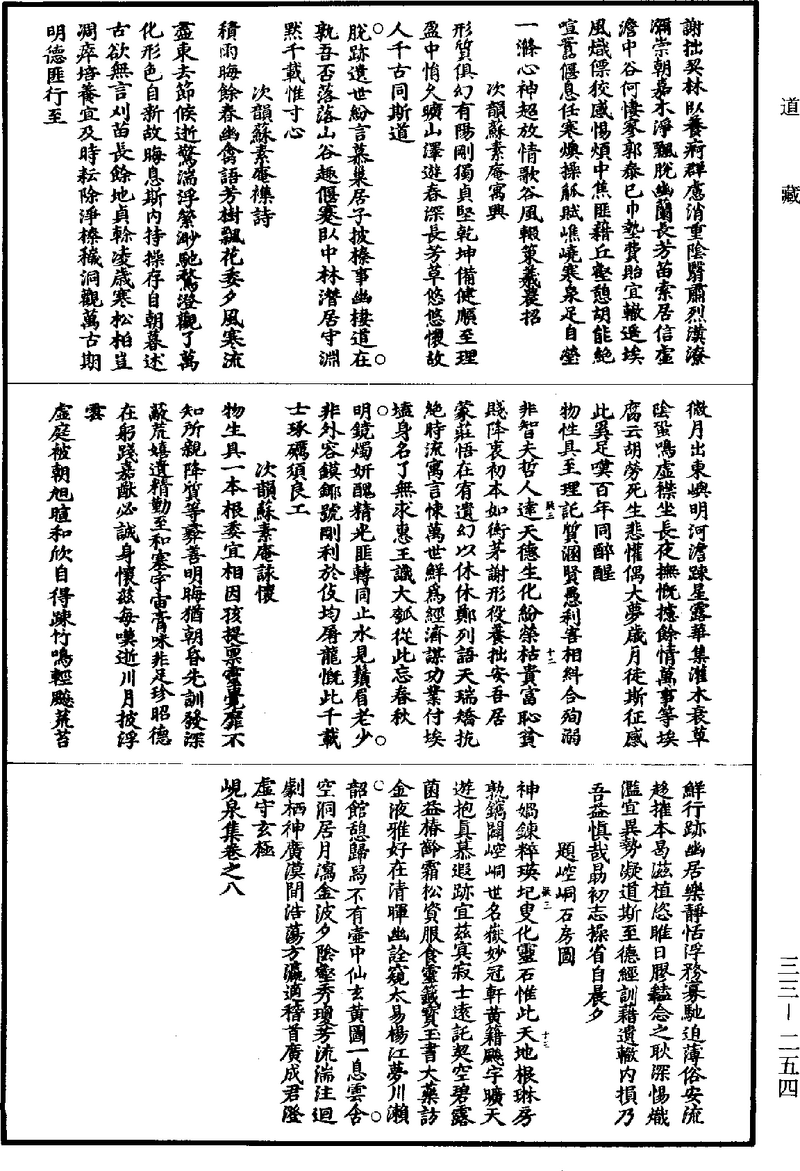 道藏
謝拙契林臥養痾群慮消重陰翳肅烈漠潦
瀰崇朝嘉木淨飄脫幽蘭長芳苗索居信虛
澹中谷何悽寥郭泰已巾墊費貽宜轍遥埃
風熾僄狡感惕煩中焦匪藉丘壑憩胡能絶
喧囂偃息任寒燠操觚賦嶕嶢寒泉足自瑩
一滌心神超放情歌谷風輟策羲農招
次韻蘇素庵寓興
形質俱幻有陽剛獨貞堅乾坤備健順至理
盈中悁久曠山澤遊春深長芳草悠悠懷故
人千古同斯道
脫跡遺世紛言慕巢居子披榛事幽棲道在
孰吾否落落山谷趣偃蹇臥中林潛居守淵
默千載惟寸心
次韻蘇素庵櫟詩
積雨晦餘春幽禽語芳樹飄花委夕風寒流
盡東去節候逝驚湍浮縈渺馳騖澄觀了萬
化形色自新故晦息斯內持操存自朝暮述
古欲無言刈苗長餘地貞榦凌歲寒松柏豈
凋瘁培養宜及時耘除淨榛穢洞觀萬古期
明德匪行至
微月出東嶼明河澹踈星露華集灌木衰草
陰蛩鳴虛襟坐長夜撫慨攄餘情萬事等埃
腐云胡勞死生悲懽偶大夢歲月徒斯征感
此異足嘆百年同醉醒
物性具至理託質涵賢愚利害相糾合殉溺
非智夫哲人達天德生化紛榮枯貴富恥貧
賤降衷初本如衡茅謝形役養拙安吾居
蒙莊悟在有遺幻以休休鄭列語天瑞矯抗
絶時流寓言悚萬世鮮爲經濟謀功業付埃
壒身名了無求惠王識大瓠從此忘春秋
明鏡燭妍醜精光匪轉同止水見鬚眉老少
非外容鏌鎁號剛利於伎均屠龍慨此千載
士琢礪須良工
次韻蘇素庵詠懷
物生具一本根委宜相因孩提票靈覺靡不
知所親降質等彝善明晦猶朝昏先訓發深
蔽荒嬉遺精勤至和塞宇宙膏味非足珍昭德
在躬踐嘉猷必誠身懷茲每嘆逝川月披浮
雲
虛庭被朝旭暄和欣自得踈竹鳴輕颸荒苔
鮮行跡幽居樂靜恬浮務寡馳迫薄俗安流
趍摧本曷滋植恣睢日膠轕念之耿深惕熾
濫宜異勢凝道斯至德經訓藉遺轍內損乃
吾益慎哉勗初志操省自晨夕
題崆峒石房圖
神媧鍊粹瑛圮叟化靈石惟此天地根琳房
熟鐫闢崆峒世名嶽妙冠軒黄籍颸宇曠天
遊抱真慕遐跡宜茲寘寂士遠託契空碧露
菌益椿齡霜松資服食靈籤寶玉書大藥訪
金液雅好在清暉幽詮窺太易楊江夢川瀨
韶館憩歸舄不有壺中仙玄黄圖一息雲舍
空洞居月瀉金波夕陰壑秀瓊芳流湍注迴
劇栖神廣漠間浩蕩方瀛適稽首廣成君澄
虛守玄極
峴泉集卷之八
三三—二五四